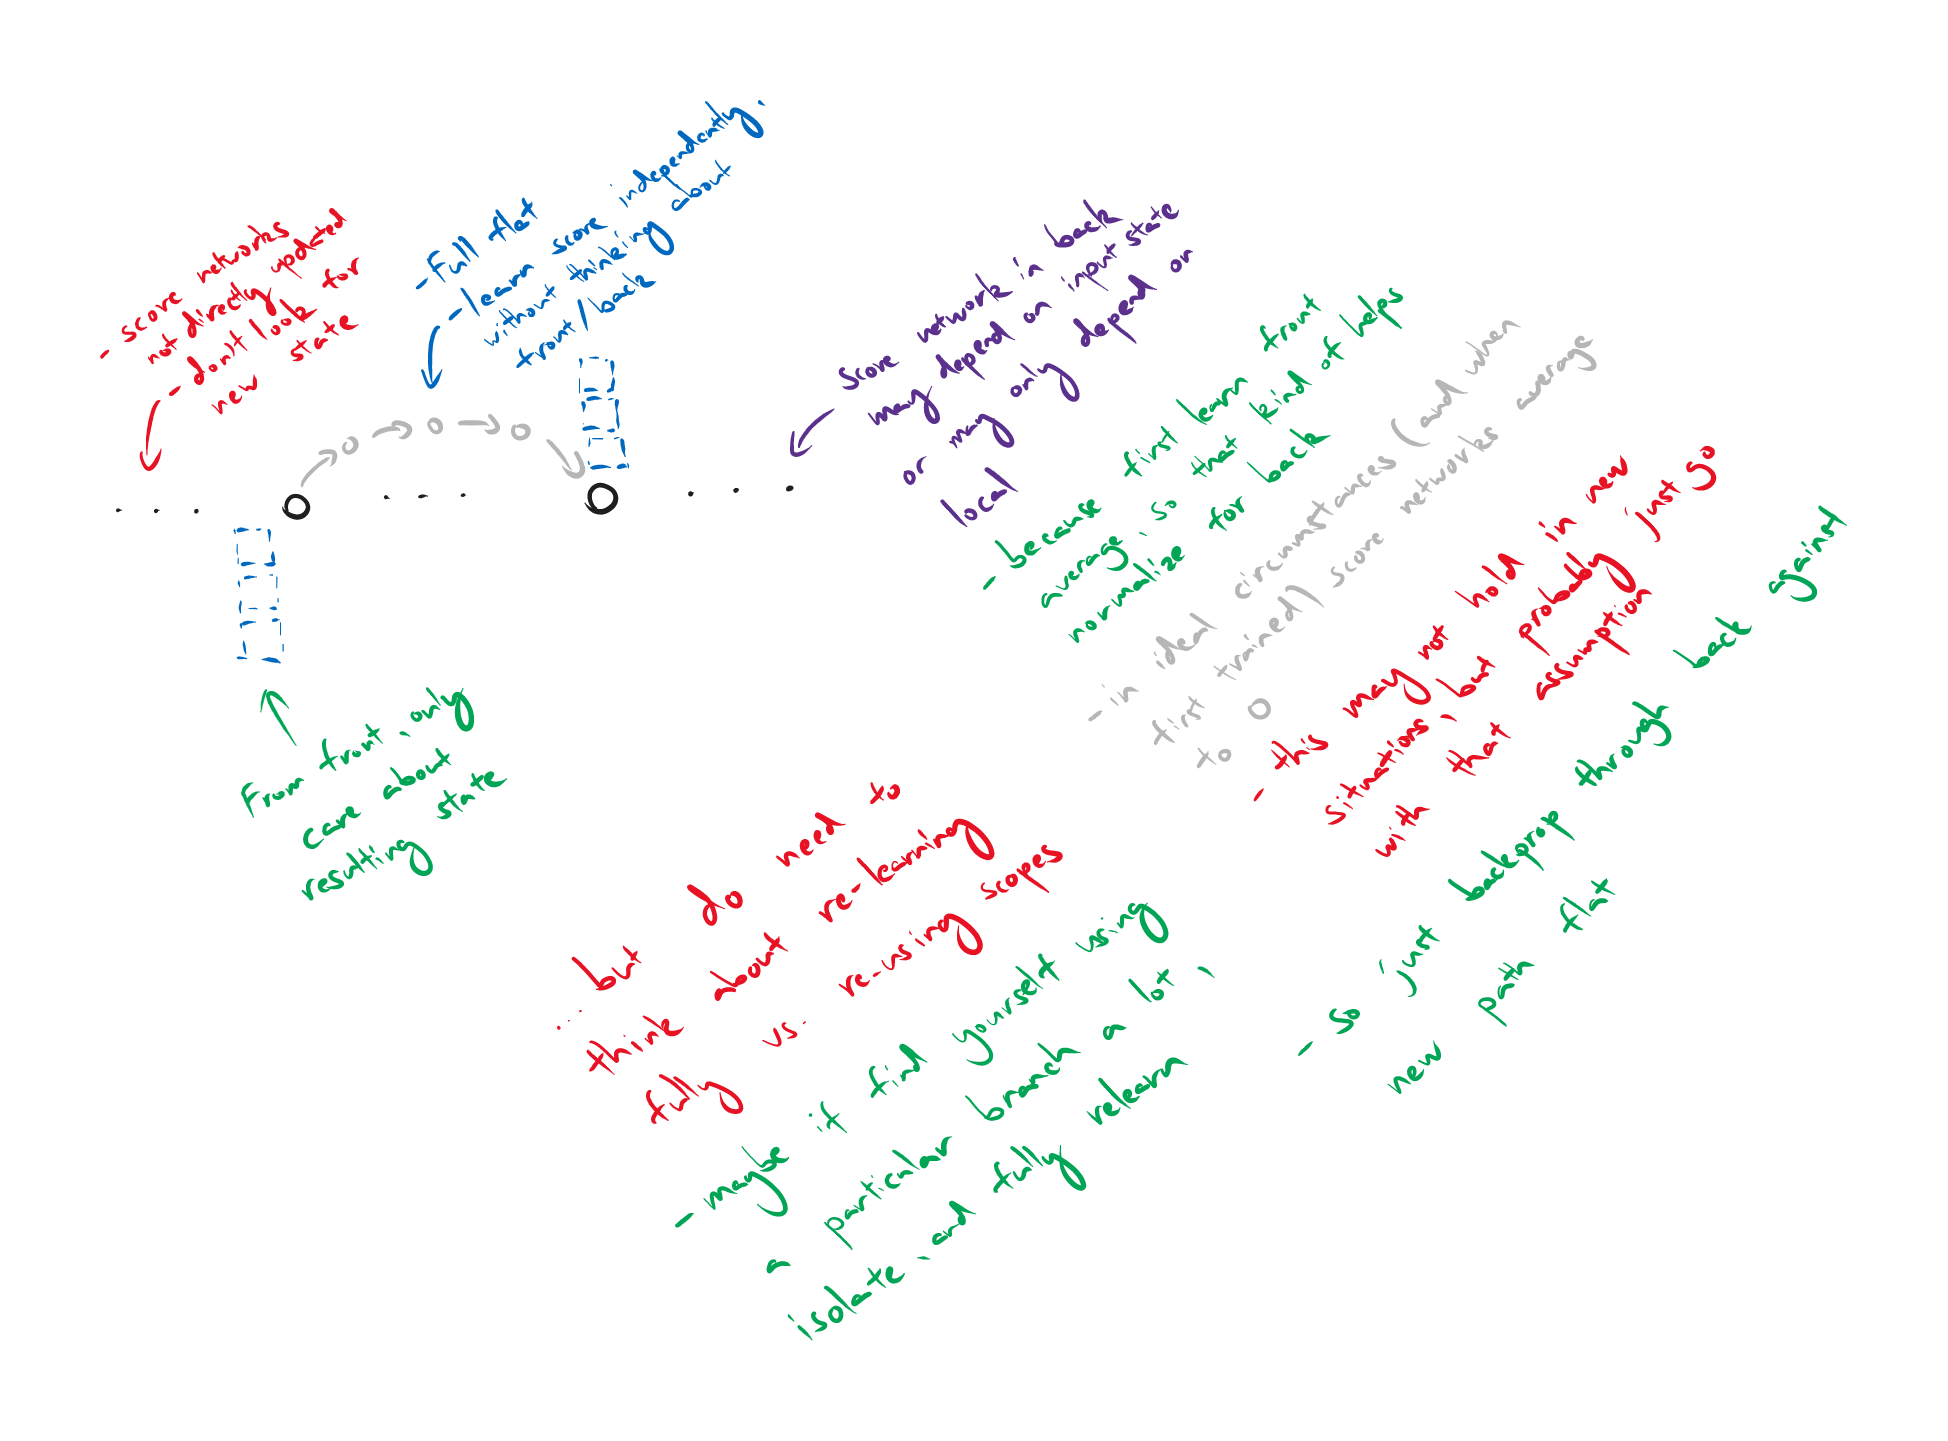 - score networks
not directly updated
- don't look for
new state
- Full flat
- learn score independently,
without thinking about
front/back
Score network in back
may depend on input state
or may only depend on
local
- because first learn front
average, so that kind of helps
normalize for back
- in ideal circumstances (and when
first trained) score networks average
to 0
- this may not hold in new
situations, but probably just go
with that assumption
- so just backprop through back against
new path flat
From front, only
care about
resulting state
... but do need to
think about re-learning
fully vs. re-using scopes
- maybe if find yourself using
a particular branch a lot,
isolate, and fully relearn